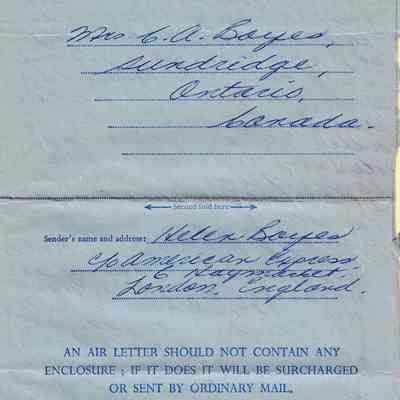 Mrs C. A. Boyes,
Sundridge,
Ontario,
Canada.
Second fold here
Sender's name and address: Helen Boyes
c/o American Express
6 Haymarket.
London, England.
AN AIR LETTER SHOULD NOT CONTAIN ANY
ENCLOSURE ; IF IT DOES IT WILL BE SURCHARGED
OR SENT BY ORDINARY MAIL.